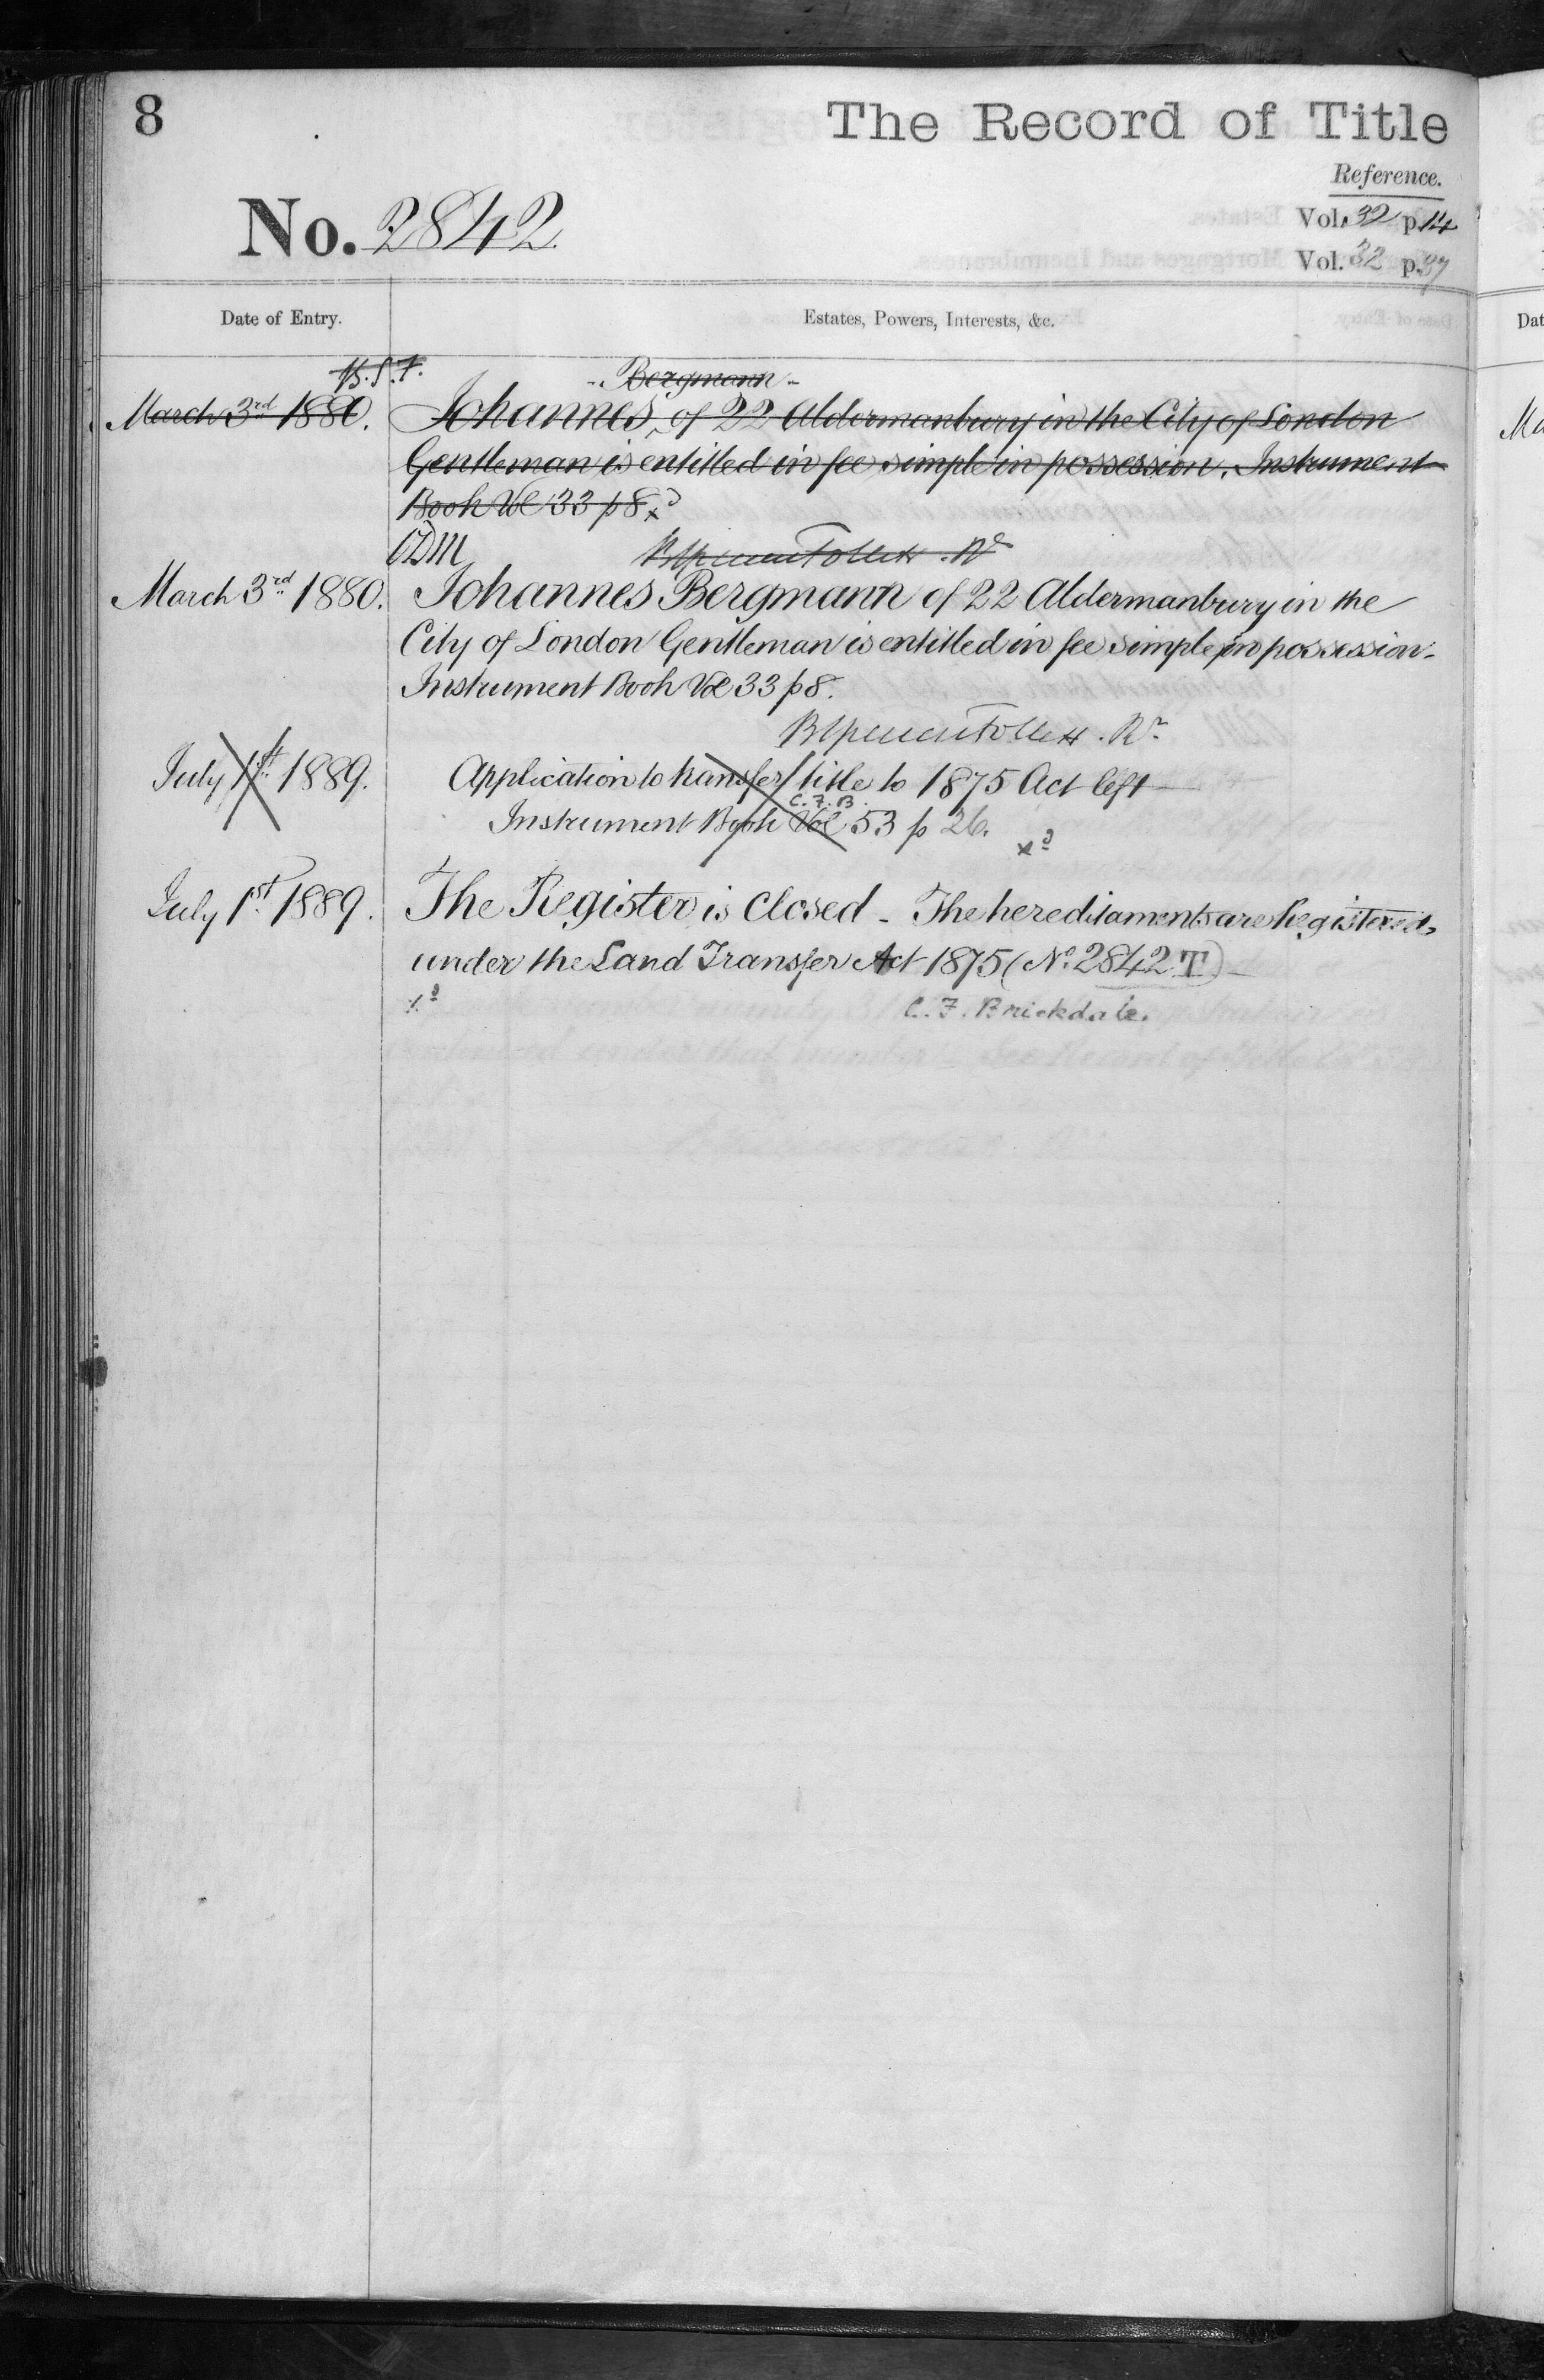 8
The Record of Title
Reference.
No. 2842
Vol. 32 p. 14
Vol. 32 p. 37
Date of Entry.
Estates, Powers, Interests, &c.
B.S.F.
Bergmann
March 3rd 1880.
Johannes of 22 Aldermanbury in the City of London
Gentleman is entitled in fee simple in possession. Instrument
Book Vol 33 p 8 xd
CDM
Rr
March 3rd 1880.
Johannes Bergmann of 22 Aldermanbury in the
City of London Gentleman is entitled in fee simple in possession.
Instrument Book Vol 33 p 8.
Rr
July 1st 1889.
Application to transfer title to 1875 Act left
C.F.B.
Instrument Book Vol 53 p 26.
xd
July 1st 1889.
The Register is Closed - The hereditaments are Registered
under the Land Transfer Act 1875 (No. 2842 T)
xd
C.F. Brickdale.
Dat
Ma